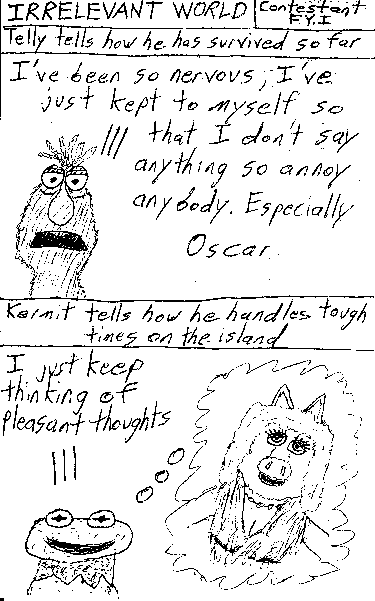 IRRELEVANT WORLD
Contestant
F.Y.I
Telly tells how he has survived so far
I've been so nervous, I've
just kept to myself so
that I don't say
anything so annoy
anybody. Especially
Oscar.
Kermit tells how he handles tough
times on the island
I just keep
thinking of
pleasant thoughts